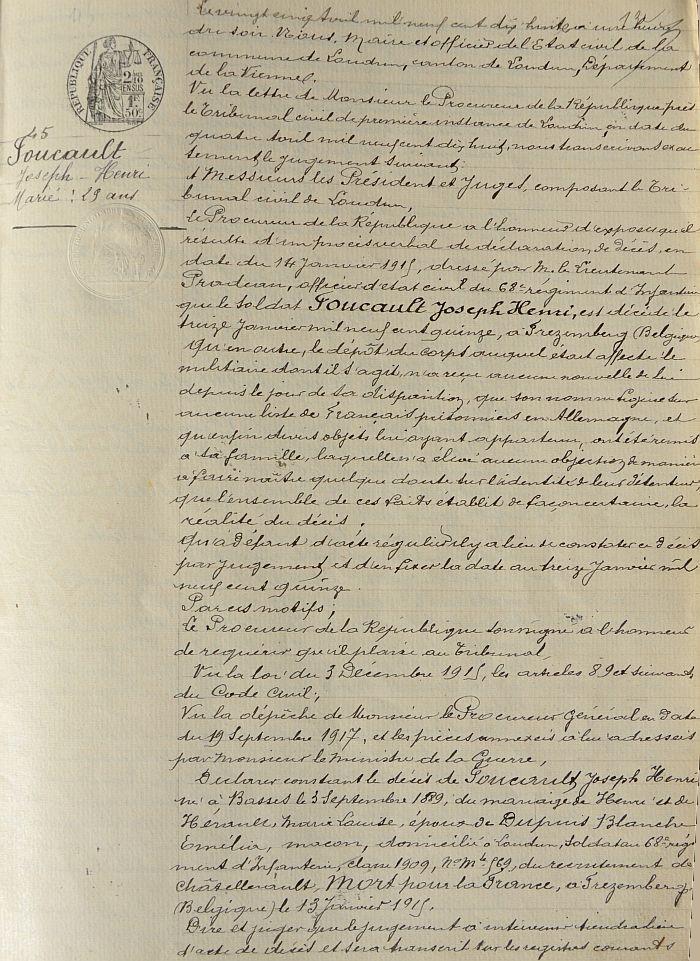 Le vingt cinq avril mil neuf cent dix huit à une heure
du soir. Nous, Maire et officier de l'Etat civil de la
commune de Loudun, canton de Loudun, Département
de la Vienne.
Vu la lettre de Monsieur le Procureur de la République près
le Tribunal civil de première instance de Loudun, en date du
quatre avril mil neuf cent dix huit, nous transcrivons exac
tement le jugement suivant:
A Messieurs les Président et Juges, composant le Tri-
bunal civil de Loudun,
Le Procureur de la République a l'honneur d'exposer qu'il
résulte d'un procès verbal de déclaration de décès, en
date du 14 Janvier 1915, dressé par M. le Lieutenant
Pradeau, officier d'état civil du 68e régiment d'Infanterie
que le soldat Foucault Joseph Henri, est décédé le
treize Janvier mil neuf cent quinze, à Frezemberg (Belgique)
Qu'en outre, le dépôt du corps auquel était affecté le
militaire dont il s'agit, n'a reçu aucune nouvelle de lui
depuis le jour de sa disparition, que son nom ne figure sur
aucune liste de Français prisonniers en Allemagne, et
qu'enfin divers objets lui ayant appartenu, ont été remis
à sa famille, laquelle n'a élevé aucune objection de manière
à faire naître quelque doute sur l'identité de leur détenteur,
que l'ensemble de ces faits établit de façon certaine, la
réalité du décès.
Qu'à défaut d'acte régulier il y a lieu de constater ce décès
par jugement et d'en fixer la date au treize Janvier mil
neuf cent quinze.
Par ces motifs;
Le Procureur de la République soussigné a l'honneur
de requérir qu'il plaise au Tribunal,
Vu la loi du 3 Décembre 1915, les articles 89 et suivants
du Code Civil;
Vu la dépêche de Monsieur le Procureur Général en date
du 19 Septembre 1917, et les pièces annexées à lui adressées
par Monsieur le Ministre de la Guerre,
Déclarer constant le décès de Foucault, Joseph Henri
né à Basses le 3 Septembre 1889, du mariage de Henri et de
Hérault, Marie Louise, époux de Dupuis Blanche
Emélia, maçon, domicilié à Loudun, Soldat au 68e régi
ment d'Infanterie, classe 1909, No Mle 569, du recrutement de
Châtellerault, Mort pour la France, à Frezemberg
(Belgique) le 13 Janvier 1915.
Dire et juger que le jugement à intervenir tiendra lieu
d'acte de décès et sera transcrit sur les registres courants
RÉPUBLIQUE FRANÇAISE
45
Foucault
Joseph-Henri
Marié: 29 ans